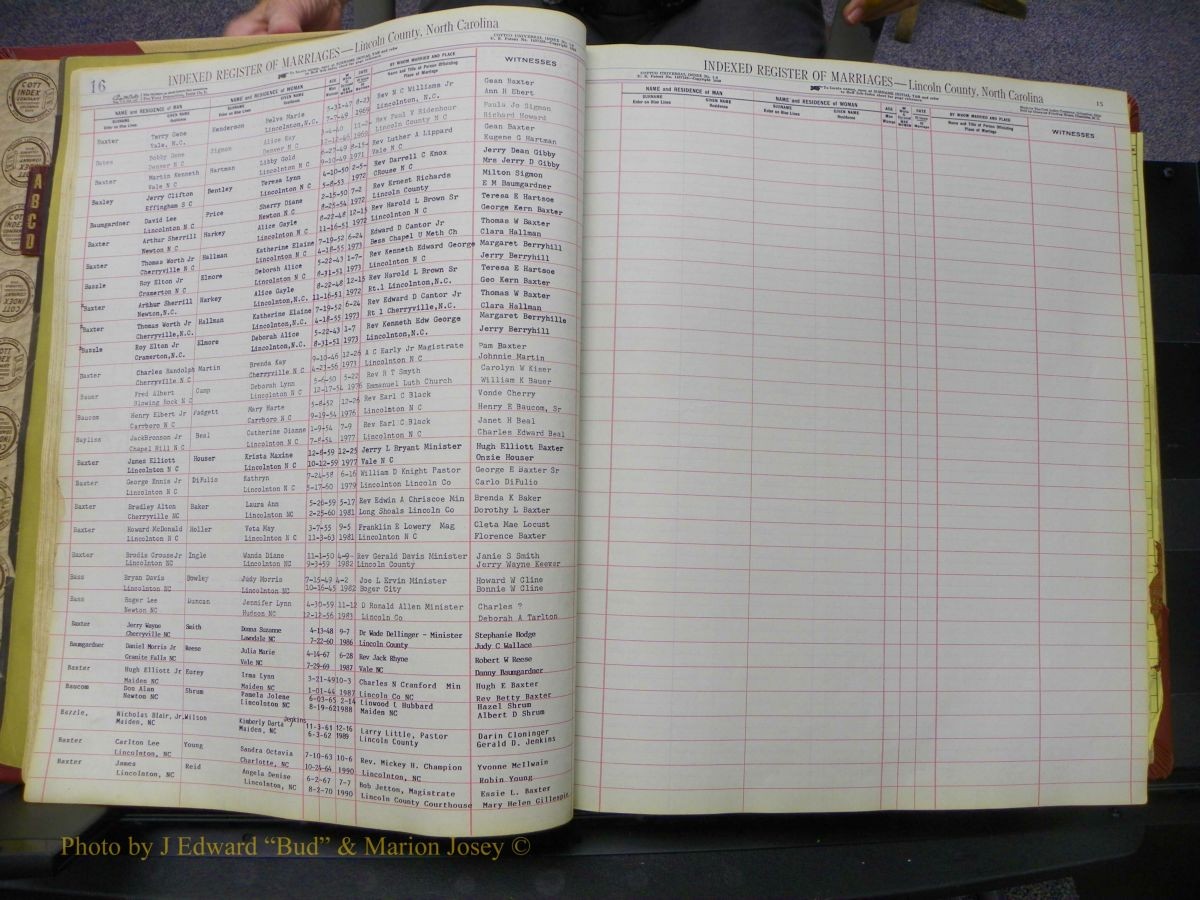 16
INDEXED REGISTER OF MARRIAGES—Lincoln County, North Carolina
NAME and RESIDENCE OF MAN NAME and RESIDENCE OF WOMAN BY WHOM MARRIED AND PLACE WITNESSES
SURNAME GIVEN NAME SURNAME GIVEN NAME
Baxter Terry Gene Henderson Melva Marie 5-31-47 8-23 Rev N C Williams Jr Gean Baxter
Vale, N.C. Lincolnton,N.C. 7-7-49 1969 Lincolnton, N.C. Ann H Ebert
Bobby Gene Sigmon Alice Kay Rev Paul V Ridenhour Paula Jo Sigmon
Denver N C Denver N C Lincoln County N C Richard Howard
Baxter Martin Kenneth Hartman Libby Gold 6-27-49 8-15 Rev Luther A Lippard Gean Baxter
Vale N C Lincolnton N C 9-10-49 1971 Vale N C Eugene G Hartman
Baxley Jerry Clifton Bentley Teresa Lynn 4-10-50 2-5- Rev Darrell C Knox Jerry Dean Gibby
Effingham S C Lincolnton N C 5-8-53 1972 CRouse N C Mrs Jerry D Gibby
Baumgardner David Lee Price Sherry Diane 2-15-50 7-2 Rev Ernest Richards Milton Sigmon
Lincolnton N C Newton N C 8-25-54 1972 Lincoln County E M Baumgardner
Baxter Arthur Sherrill Harkey Alice Gayle 8-22-48 12-15 Rev Harold L Brown Sr Teresa E Hartsoe
Newton N C Lincolnton N C 11-16-51 1972 Lincolnton N C George Kern Baxter
Baxter Thomas Worth Jr Hallman Katherine Elaine 7-19-52 6-24 Edward D Cantor Jr Thomas W Baxter
Cherryville N C Lincolnton N C 4-18-55 1973 Bess Chapel U Meth Ch Clara Hallman
Bazzle Roy Elton Jr Elmore Deborah Alice 5-22-43 1-7- Rev Kenneth Edward George Margaret Berryhill
Cramerton N C Lincolnton N C 8-31-51 1973 Lincolnton N C Jerry Berryhill
Baxter Arthur Sherrill Harkey Alice Gayle 8-22-48 12-15 Rev Harold L Brown Sr Teresa E Hartsoe
Newton,N.C. Lincolnton,N.C. 11-16-51 1972 Rt.1 Lincolnton,N.C. Geo Kern Baxter
Baxter Thomas Worth Jr Hallman Katherine Elaine 7-19-52 6-24 Rev Edward D Cantor Jr Thomas W Baxter
Cherryville,N.C. Lincolnton,N.C. 4-18-55 1973 Rt 1 Cherryville,N.C. Clara Hallman
Bazzle Roy Elton Jr Elmore Deborah Alice 5-22-43 1-7 Rev Kenneth Edw George Margaret Berryhille
Cramerton,N.C. Lincolnton,N.C. 8-31-51 1973 Lincolnton,N.C. Jerry Berryhill
Baxter Charles Randolph Martin Brenda Kay 9-10-46 12-26 A C Early Jr Magistrate Pam Baxter
Cherryville N C Cherryville N C 4-23-56 1973 Lincolnton N C Johnnie Martin
Bauer Fred Albert Camp Deborah Lynn 5-6-50 5-22 Rev H T Smyth Carolyn W Kiser
Blowing Rock N C Lincolnton N C 12-17-54 1976 Emmanuel Luth Church William K Bauer
Baucom Henry Elbert Jr Padgett Mary Marte 5-8-52 12-26 Rev Earl C Black Vonde Cherry
Carrboro N C Carrboro N C 9-19-54 1976 Lincolnton N C Henry E Baucom, Sr
Bayliss JackBronson Jr Beal Catherine Dianne 1-9-54 7-9 Rev Earl C Black Janet H Beal
Chapel Hill N C Lincolnton N C 7-8-54 1977 Lincolnton N C Charles Edward Beal
Baxter James Elliott Houser Krista Maxine 12-8-59 12-25 Jerry L Bryant Minister Hugh Elliott Baxter
Lincolnton N C Lincolnton N C 10-12-59 1977 Vale N C Onzie Houser
Baxter George Ennis Jr DiFulio Kathryn 7-24-58 6-16 William D Knight Pastor George E Baxter Sr
Lincolnton N C Lincolnton N C 5-17-60 1979 Lincolnton Lincoln Co Carlo DiFulio
Baxter Bradley Alton Baker Laura Ann 5-26-59 5-17 Rev Edwin A Chriscoe Min Brenda K Baker
Cherryville NC Lincolnton NC 2-25-60 1981 Long Shoals Lincoln Co Dorothy L Baxter
Baxter Howard McDonald Holler Veta May 3-7-55 9-5 Franklin E Lowery Mag Cleta Mae Locust
Lincolnton N C Lincolnton N C 11-3-63 1981 Lincolnton N C Florence Baxter
Baxter Brodis CrouseJr Ingle Wanda Diane 11-1-50 4-9- Rev Gerald Davis Minister Janie S Smith
Lincolnton NC Lincolnton NC 9-3-59 1982 Lincoln County Jerry Wayne Keever
Bass Bryan Davis Bowley Judy Morris 7-15-49 4-2 Joe L Ervin Minister Howard W Cline
Lincolnton NC Lincolnton NC 10-16-45 1982 Boger City Bonnie W Cline
Bass Roger Lee Duncan Jennifer Lynn 4-30-59 11-12 D Ronald Allen Minister Charles ?
Newton NC Hudson NC 12-12-56 1983 Lincoln Co Deborah A Tarlton
Baxter Jerry Wayne Smith Donna Suzanne 4-13-48 9-7 Dr Wade Dellinger - Minister Stephanie Hodge
Cherryville NC Lawndale NC 7-22-60 1986 Lincoln County Judy C Wallace
Baumgardner Daniel Morris Jr Reese Julia Marie 4-14-67 6-28 Rev Jack Rhyne Robert W Reese
Granite Falls NC Vale NC 7-29-69 1987 Vale NC Danny Baumgardner
Baxter Hugh Elliott Jr Eurey Irma Lynn 3-21-49 10-3 Charles N Cranford Min Hugh E Baxter
Maiden NC Maiden NC 1-01-44 1987 Lincoln Co NC Rev Betty Baxter
Baucom Don Alan Shrum Pamela Jolene 6-03-65 2-14 Linwood t Hubbard Hazel Shrum
Newton NC Lincolnton NC 8-19-62 1988 Maiden NC Albert D Shrum
Bazzle, Nicholas Blair, Jr. Wilson Kimberly Darta Jenkins 11-3-61 12-16 Larry Little, Pastor Darin Cloninger
Maiden, NC Maiden, NC 6-3-62 1989 Lincoln County Gerald D. Jenkins
Baxter Carlton Lee Young Sandra Octavia 7-10-63 10-6 Rev. Mickey H. Champion Yvonne McIlwain
Lincolnton, NC Charlotte, NC 10-24-64 1990 Lincolnton, NC Robin Young
Baxter James Reid Angela Denise 6-2-67 7-7 Bob Jetton, Magistrate Essie L. Baxter
Lincolnton, NC Lincolnton, NC 8-2-70 1990 Lincoln County Courthouse Mary Helen Gillespie
INDEXED REGISTER OF MARRIAGES—Lincoln County, North Carolina
15
NAME and RESIDENCE OF MAN NAME and RESIDENCE OF WOMAN BY WHOM MARRIED AND PLACE WITNESSES
SURNAME GIVEN NAME SURNAME GIVEN NAME
A B C D
COTT INDEX COMPANY
Photo by J Edward “Bud” & Marion Josey ©